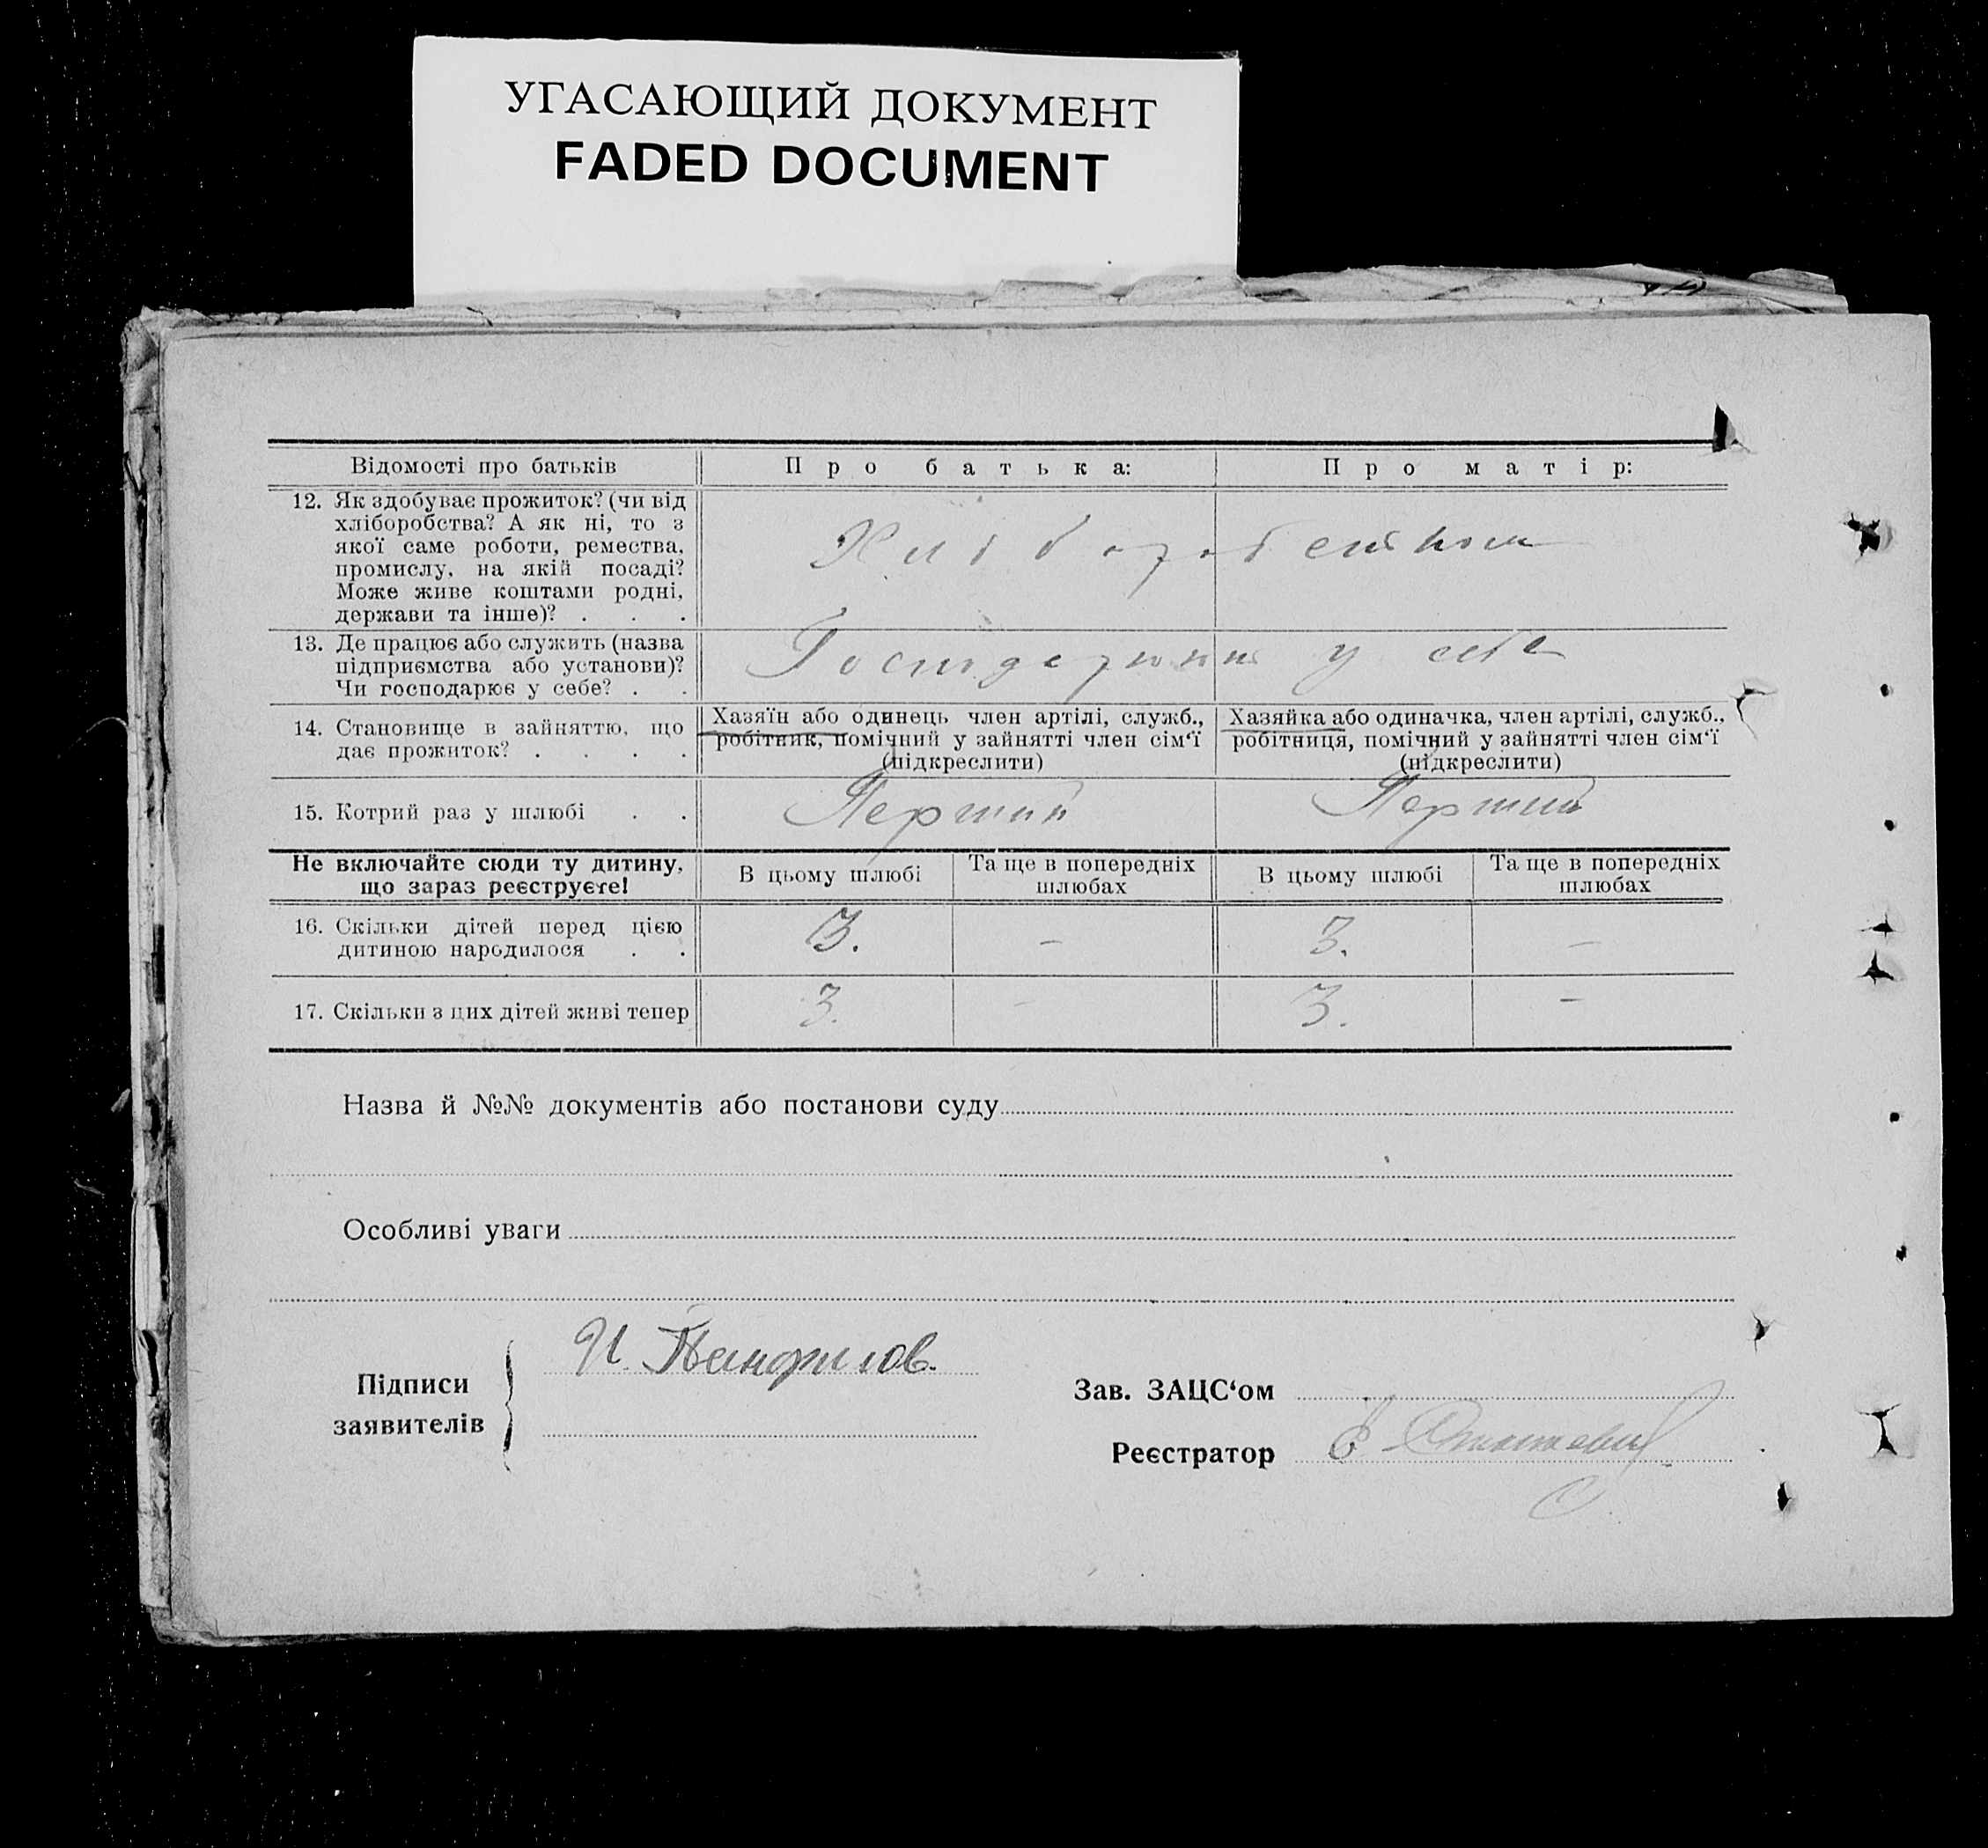 УГАСАЮЩИЙ ДОКУМЕНТ
FADED DOCUMENT
Відомості про батьків
Про батька:
Про матір:
12. Як здобуває прожиток? (чи від
хліборобства? А як ні, то з
якої саме роботи, ремества,
промислу, на якій посаді?
Може живе коштами родні,
держави та інше)? . . .
Хліборобством
13. Де працює або служить (назва
підприємства або установи)?
Чи господарює у себе? . .
у себе
14. Становище в зайняттю, що
дає прожиток? . . . .
Хазяїн або одинець член артілі, служб.,
робітник, помічний у зайнятті член сім‘ї
(підкреслити)
Хазяйка або одиначка, член артілі, служб.,
робітниця, помічний у зайнятті член сім‘ї
(підкреслити)
15. Котрий раз у шлюбі . .
Перший
Перший
Не включайте сюди ту дитину,
що зараз реєструєте!
В цьому шлюбі
Та ще в попередніх
шлюбах
В цьому шлюбі
Та ще в попередніх
шлюбах
16. Скільки дітей перед цією
дитиною народилося . .
3. – 3. –
17. Скільки з цих дітей живі тепер
3. – 3. –
Назва й №№ документів або постанови суду
Особливі уваги
И. Панфилов.
Підписи
заявителів
Зав. ЗАЦС‘ом
Реєстратор